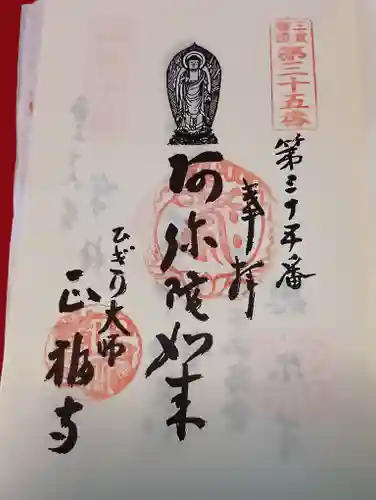 第三十五番
第三十五番
奉拝
阿弥陀如来
ひぎり大師
正福寺